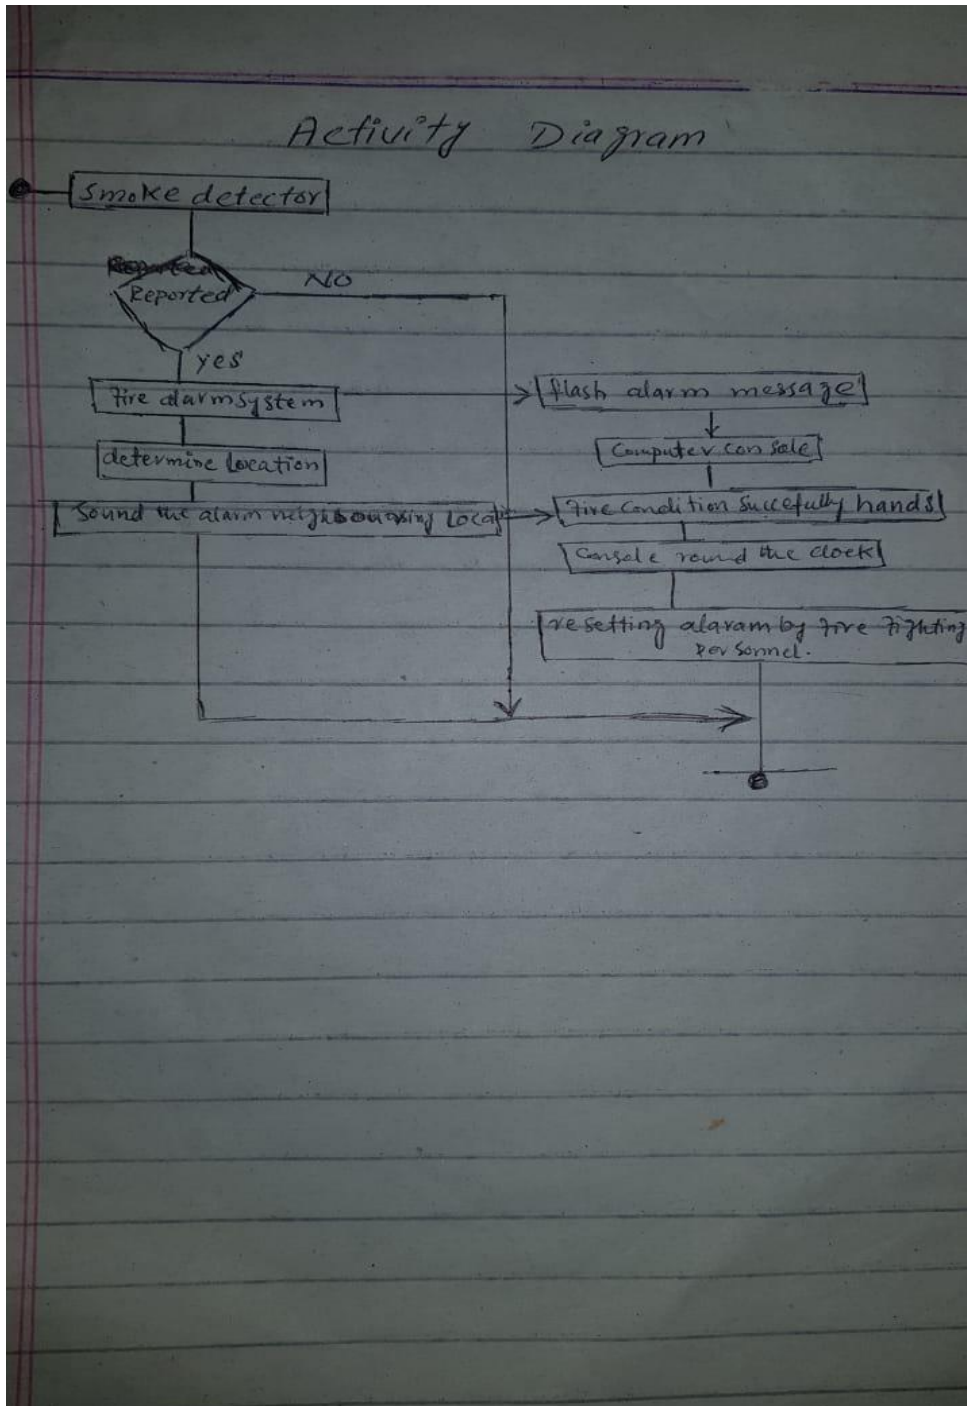 Activity Diagram
Smoke detector
Reported
Reported
NO
yes
Fire alarm system
determine location
Sound the alarm neighbouring Locat
flash alarm message
Computer console
Fire Condition Succefully hands
Console round the clock
resetting alaram by Fire Fighting
personnel.